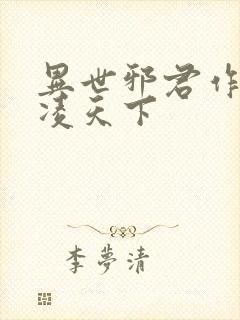 異世邪君作
淩天下
李夢清